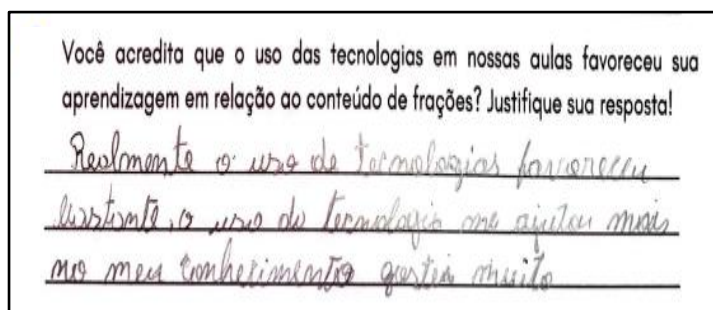 Você acredita que o uso das tecnologias em nossas aulas favoreceu sua
aprendizagem em relação ao conteúdo de frações? Justifique sua resposta!
Realmente o uso de tecnologias favoreceu
bastante, o uso da tecnologia me ajutou mais
no meu conhecimento gostei muito